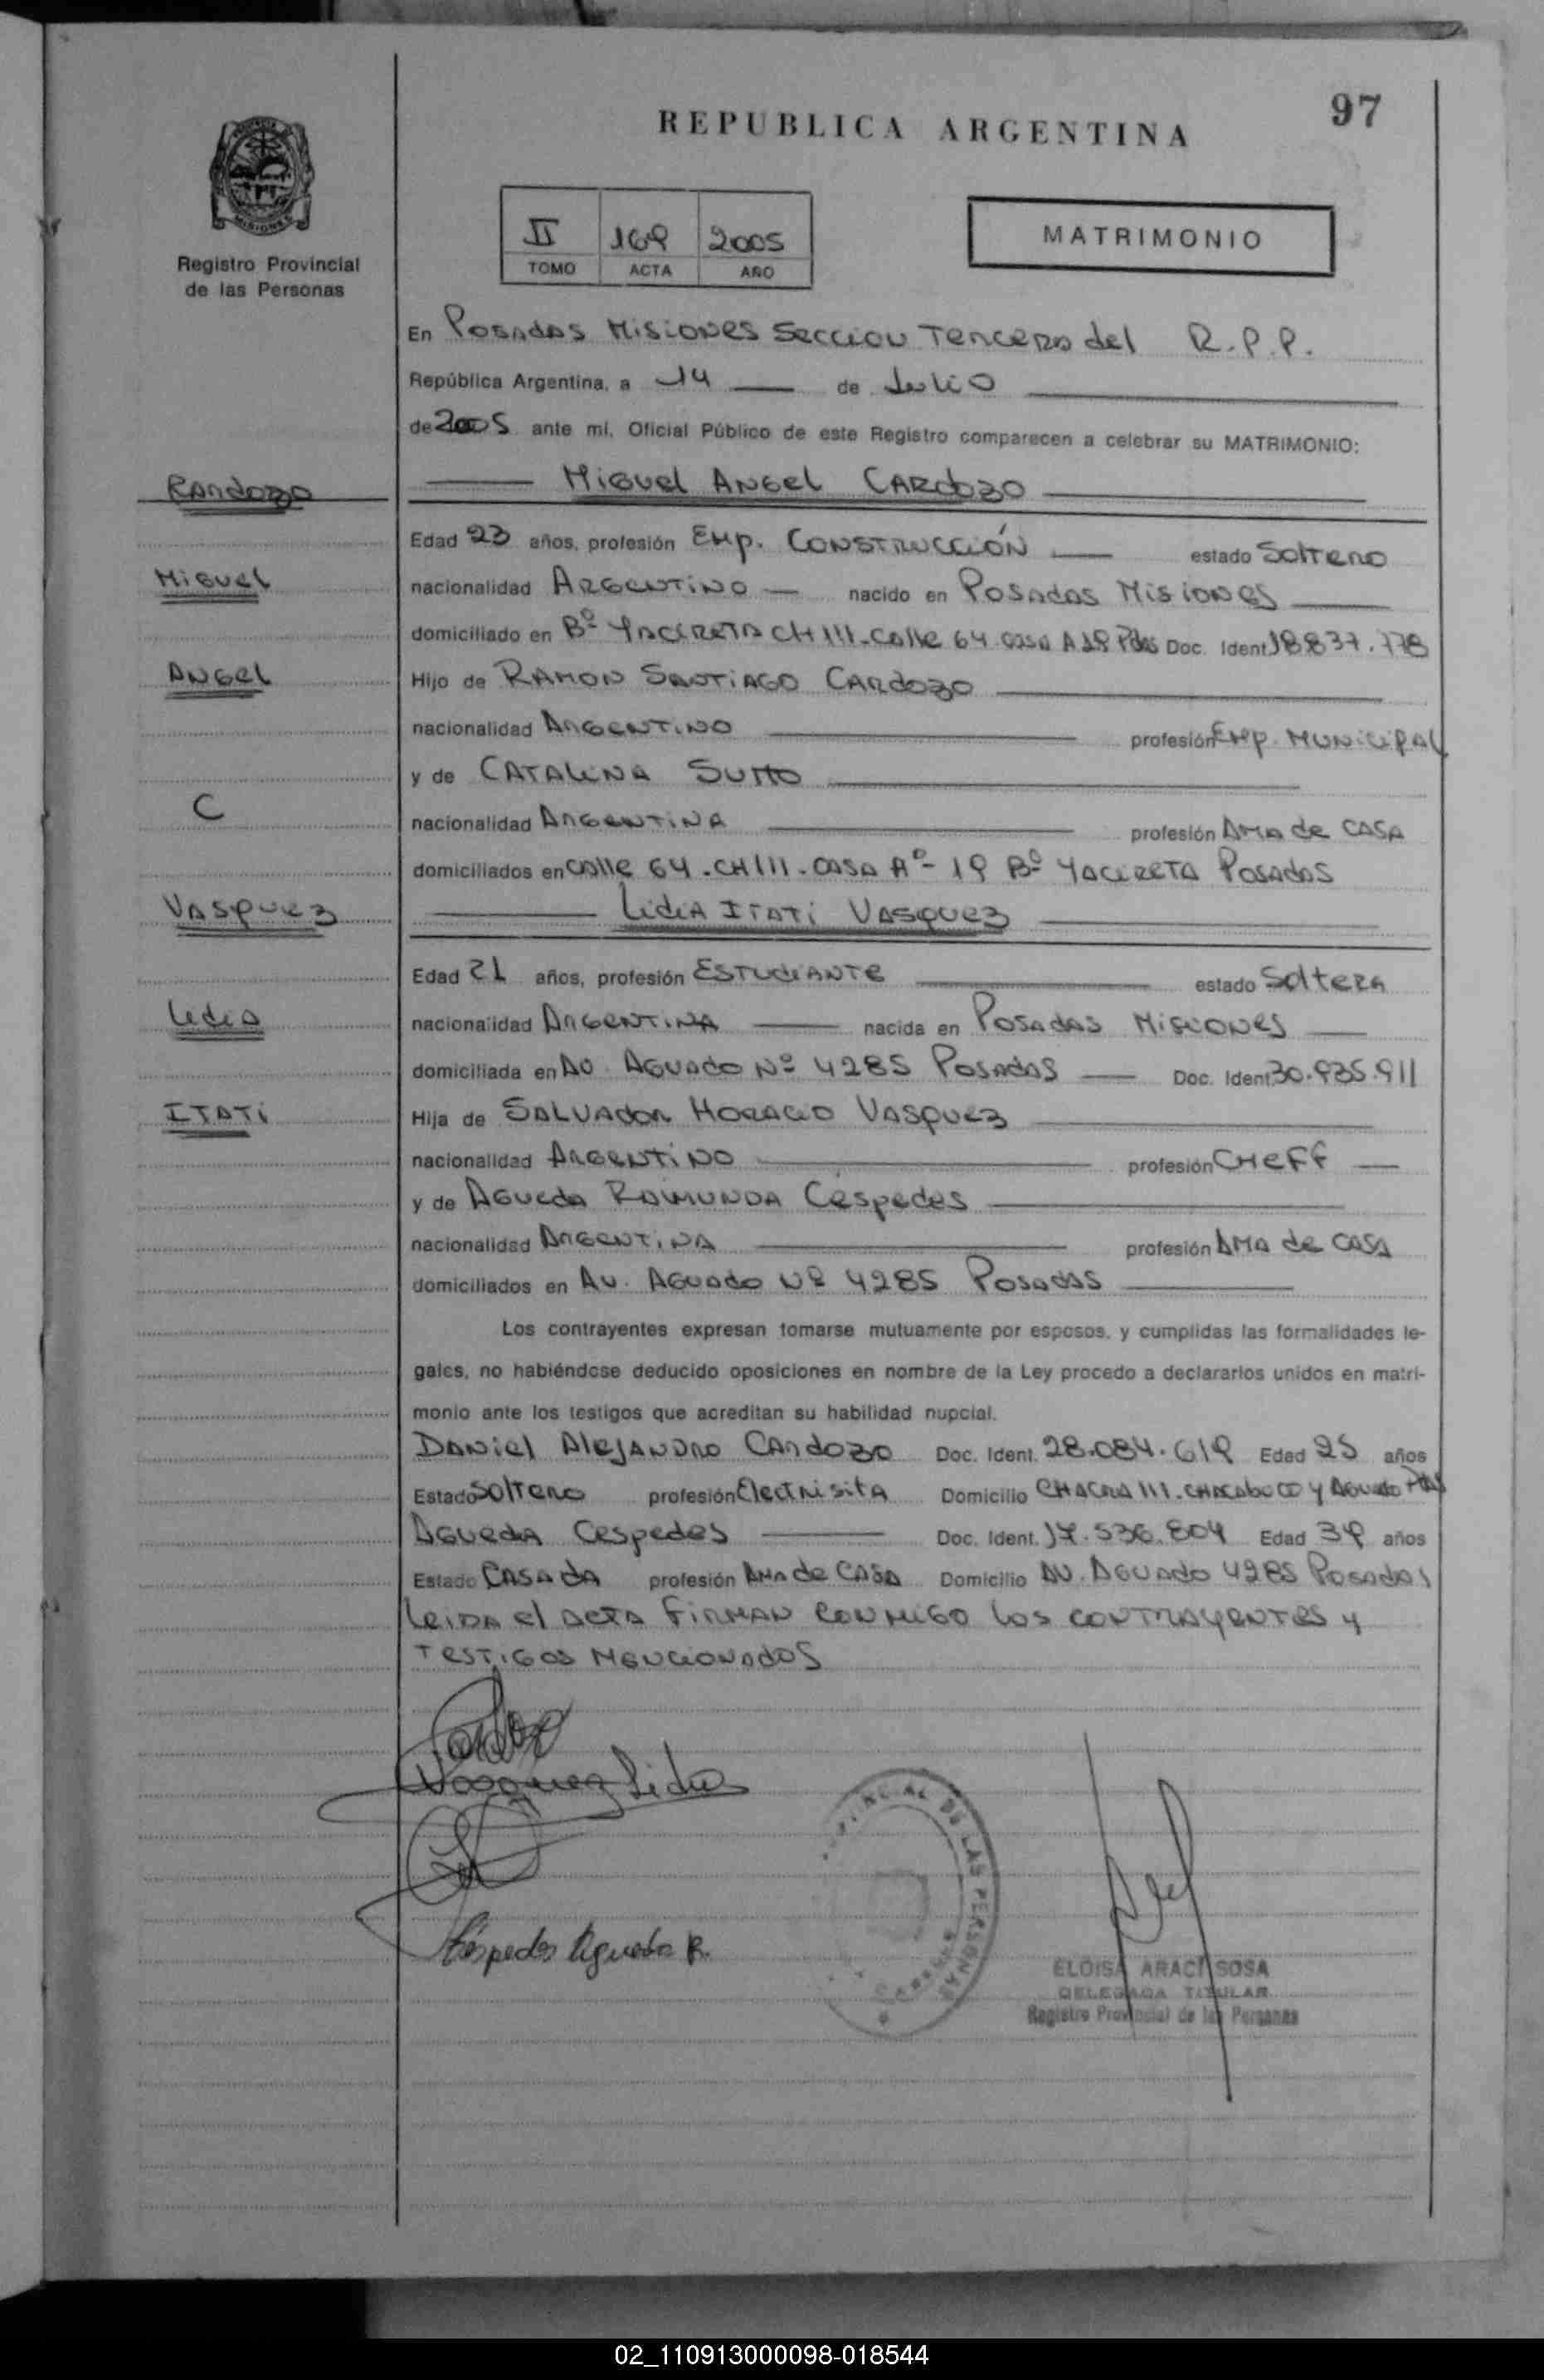 97
REPUBLICA ARGENTINA
II 169 2005
TOMO ACTA AÑO
MATRIMONIO
MISIONES
Registro Provincial
de las Personas
En Posadas Misiones Seccion Tercera del R.P.P.
República Argentina, a 14 de Julio
de 2005 ante mí, Oficial Público de este Registro comparecen a celebrar su MATRIMONIO:
Cardozo
Miguel Angel Cardozo
Edad 23 años, profesión Emp. Construcción estado Soltero
Miguel
nacionalidad Argentino nacido en Posadas Misiones
domiciliado en Bº Yacireta CH 111. Calle 64 casa A 19 Pdas Doc. Ident 18.837.778
Angel
Hijo de Ramon Santiago Cardozo
nacionalidad Argentino profesión Emp. Municipal
y de Catalina Sutto
C
nacionalidad Argentina profesión Ama de casa
domiciliados en calle 64 - CH 111 - casa Aº - 19 Bº Yacireta Posadas
Vasquez
Lidia Itati Vasquez
Edad 21 años, profesión Estudiante estado Soltera
Lidia
nacionalidad Argentina nacida en Posadas Misiones
domiciliada en Av. Aguado Nº 4285 Posadas Doc. Ident. 30.935.911
Itati
Hija de Salvador Horacio Vasquez
nacionalidad Argentino profesión Cheff
y de Agueda Raimunda Céspedes
nacionalidad Argentina profesión Ama de casa
domiciliados en Av. Aguado Nº 4285 Posadas
Los contrayentes expresan tomarse mutuamente por esposos, y cumplidas las formalidades le-
gales, no habiéndose deducido oposiciones en nombre de la Ley procedo a declararlos unidos en matri-
monio ante los testigos que acreditan su habilidad nupcial.
Daniel Alejandro Cardozo Doc. Ident. 28.084.619 Edad 25 años
Estado Soltero profesión Electrisita Domicilio Chacra 111. Chacabuco y Aguado Pdas
Agueda Cespedes Doc. Ident. 17.536.804 Edad 39 años
Estado Casada profesión Ama de casa Domicilio Av. Aguado 4285 Posadas
Leida el acta firman conmigo los contrayentes y
testigos mencionados
Vasquez Lidia
Céspedes Agueda R.
DE LAS PERSONAS
ELOISA ARACI SOSA
DELEGADA TITULAR
Registro Provincial de las Personas
02_110913000098-018544